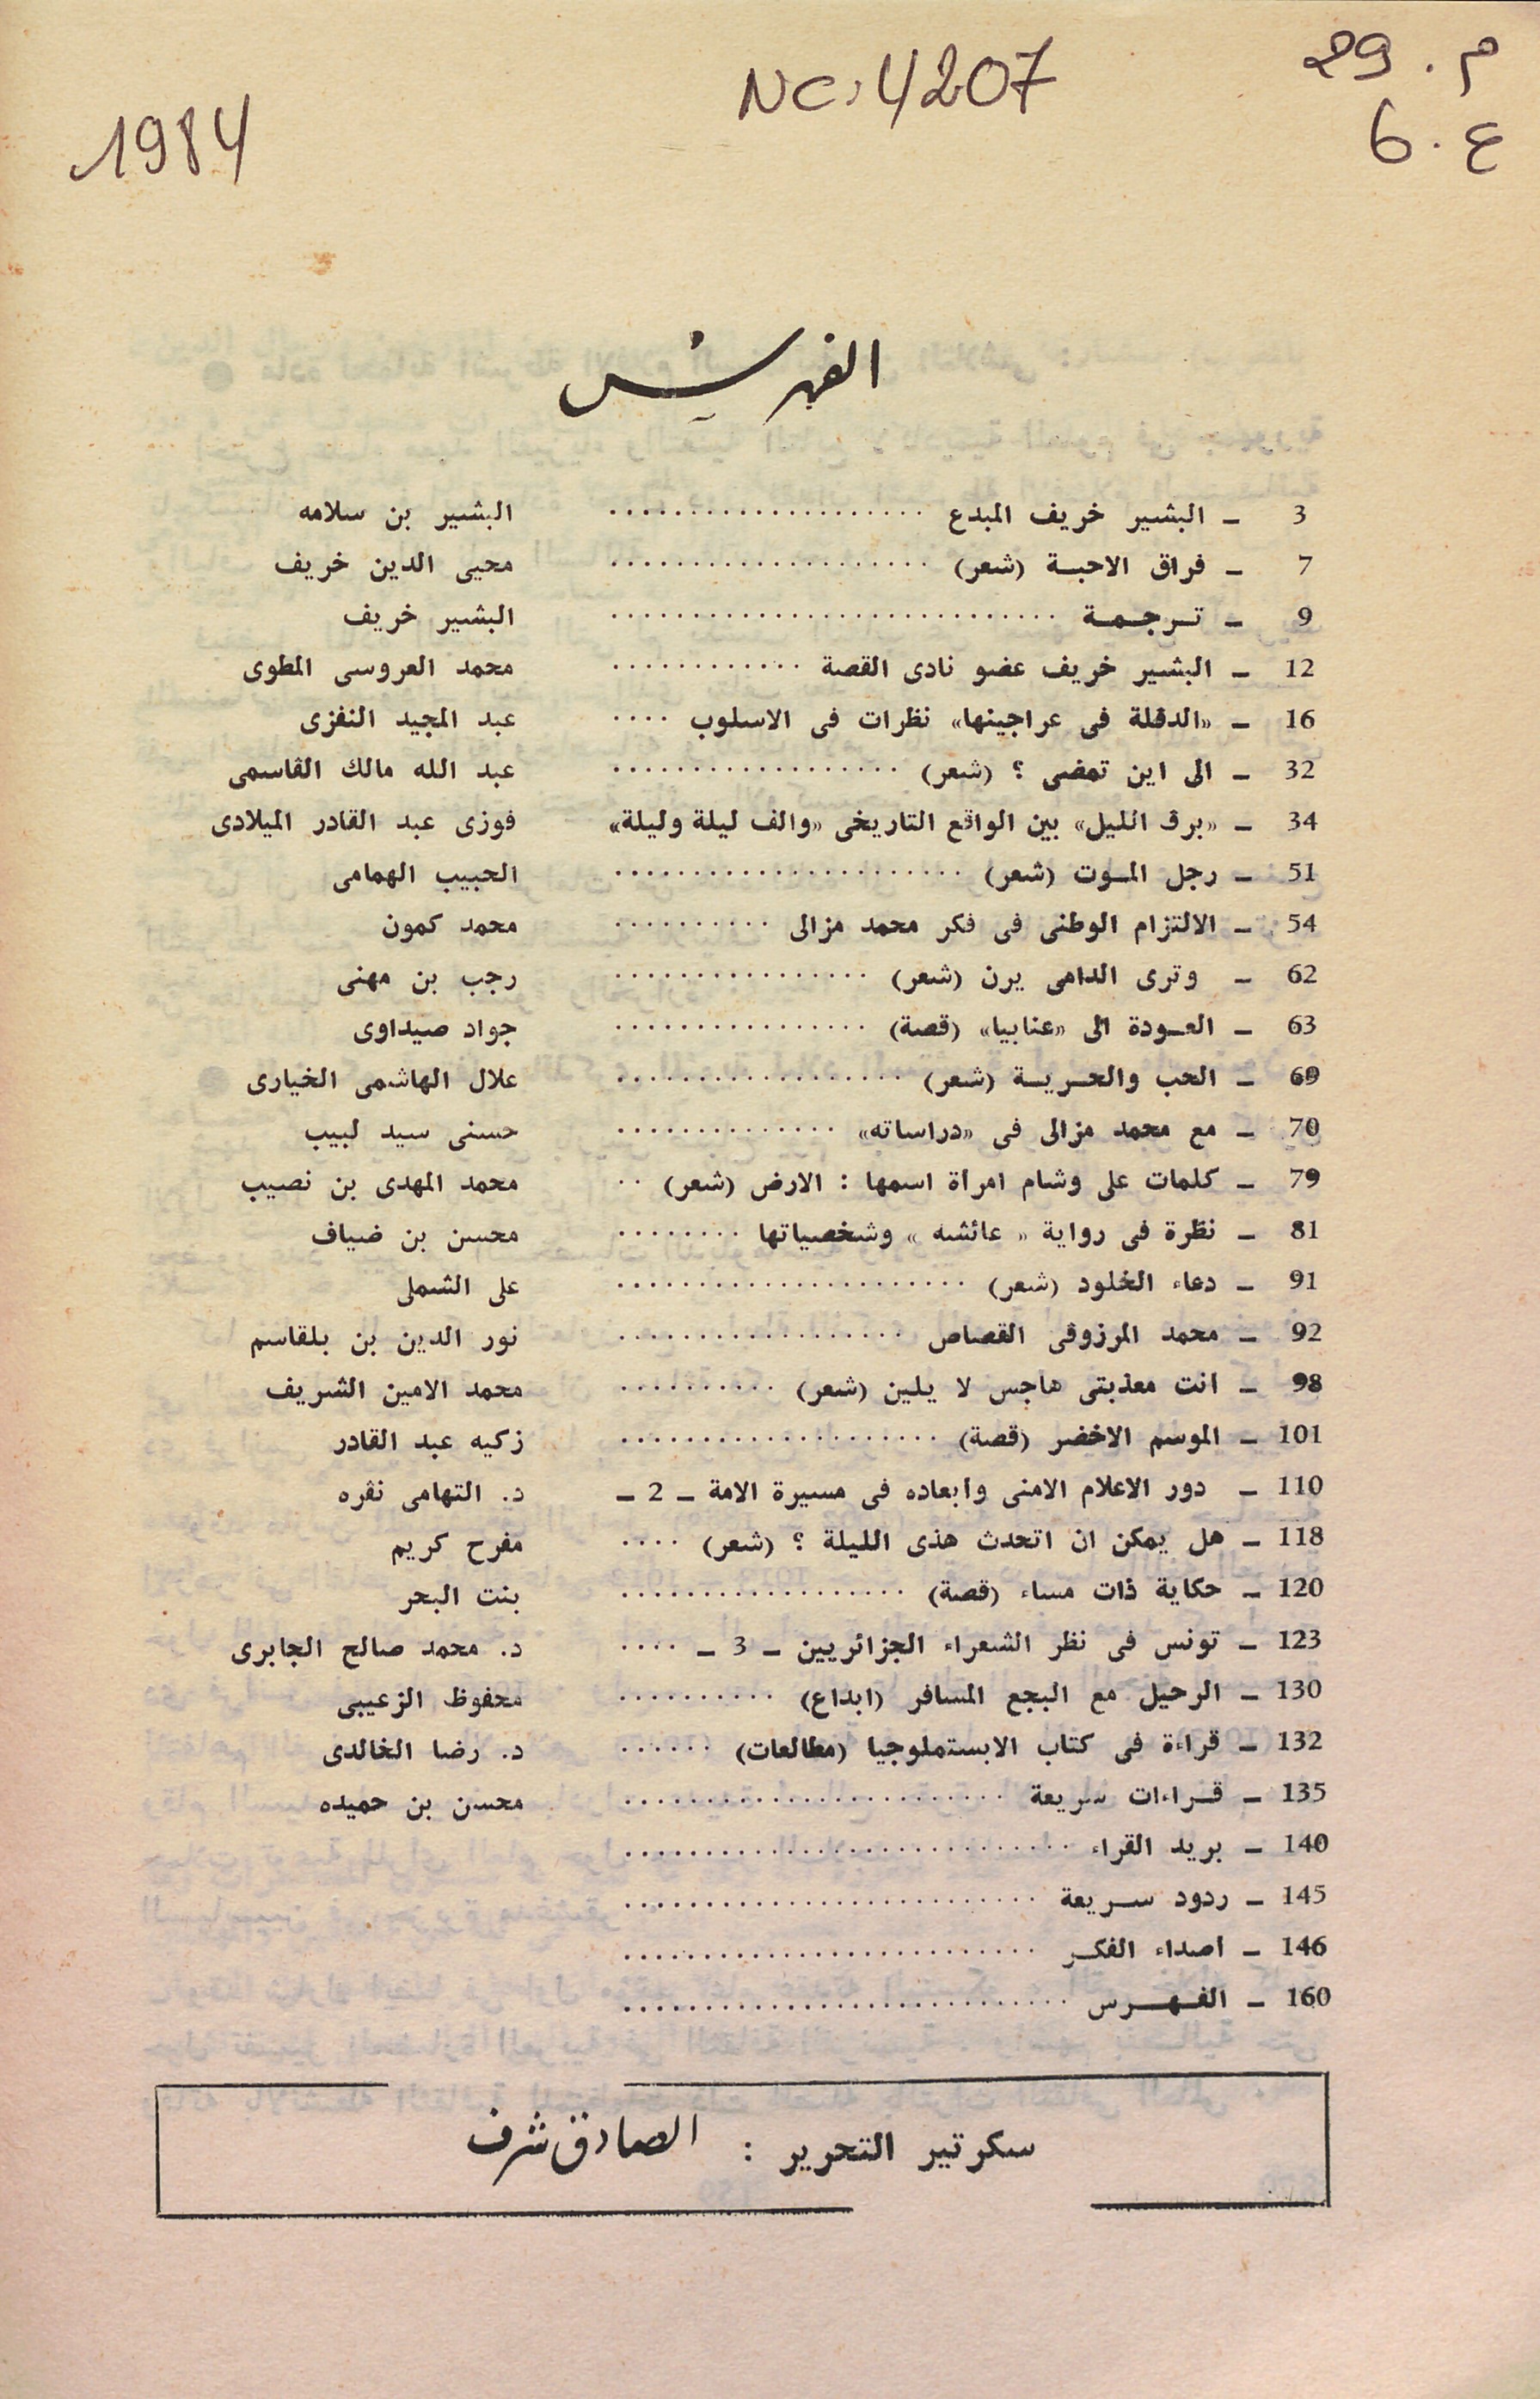 م . 29
NC. 4207
ع . 6
1984
الفهرس
3 ــ البشير خريف المبدع .................... البشير بن سلامه
7 ــ فراق الاحبـة (شعر) .................... محيى الدين خريف
9 ــ تـرجـمـة ............................ البشير خريف
12 ــ البشير خريف عضو نادى القصة ............ محمد العروسى المطوى
16 ــ «الدقلة فى عراجينها» نظرات فى الاسلوب .... عبد المجيد النفزى
32 ــ الى اين تمضى ؟ (شعر) .................. عبد الله مالك القاسمى
34 ــ «برق الليل» بين الواقع التاريخى «والف ليلة وليلة» فوزى عبد القادر الميلادى
51 ــ رجل المـوت (شعر) ...................... الحبيب الهمامى
54 ــ الالتزام الوطنى فى فكر محمد مزالى .......... محمد كمون
62 ــ وترى الدامى يرن (شعر) ................ رجب بن مهنى
63 ــ العـودة الى «عنابيا» (قصة) ................ جواد صيداوى
69 ــ الحب والحـريـة (شعر) .................. علال الهاشمى الخيارى
70 ــ مع محمد مزالى فى «دراساته» .............. حسنى سيد لبيب
79 ــ كلمات على وشام امرأة اسمها : الارض (شعر) .. محمد المهدى بن نصيب
81 ــ نظرة فى رواية « عائشه » وشخصياتها ........ محسن بن ضياف
91 ــ دعاء الخلود (شعر) ...................... على الشملى
92 ــ محمد المرزوقى القصاص .................. نور الدين بن بلقاسم
98 ــ انت معذبتى هاجس لا يلين (شعر) .......... محمد الامين الشريف
101 ــ الموسم الاخضر (قصة) .................... زكيه عبد القادر
110 ــ دور الاعلام الامنى وأبعاده فى مسيرة الامة ــ 2 ــ د. التهامى نقره
118 ــ هل يمكن ان اتحدث هذى الليلة ؟ (شعر) .... مفرح كريم
120 ــ حكاية ذات مساء (قصة) .................. بنت البحر
123 ــ تونس فى نظر الشعراء الجزائريين ــ 3 ــ .... د. محمد صالح الجابرى
130 ــ الرحيل مع البجع المسافر (ابداع) .......... محفوظ الزعيبى
132 ــ قراءة فى كتاب الابستملوجيا (مطالعات) ...... د. رضا الخالدى
135 ــ قـراءات سريعة ........................ محسن بن حميده
140 ــ بريد القراء ............................
145 ــ ردود سـريعة ..........................
146 ــ أصداء الفكـر ..........................
160 ــ الفـهـرس ............................
سكرتير التحرير : الصادق شرف